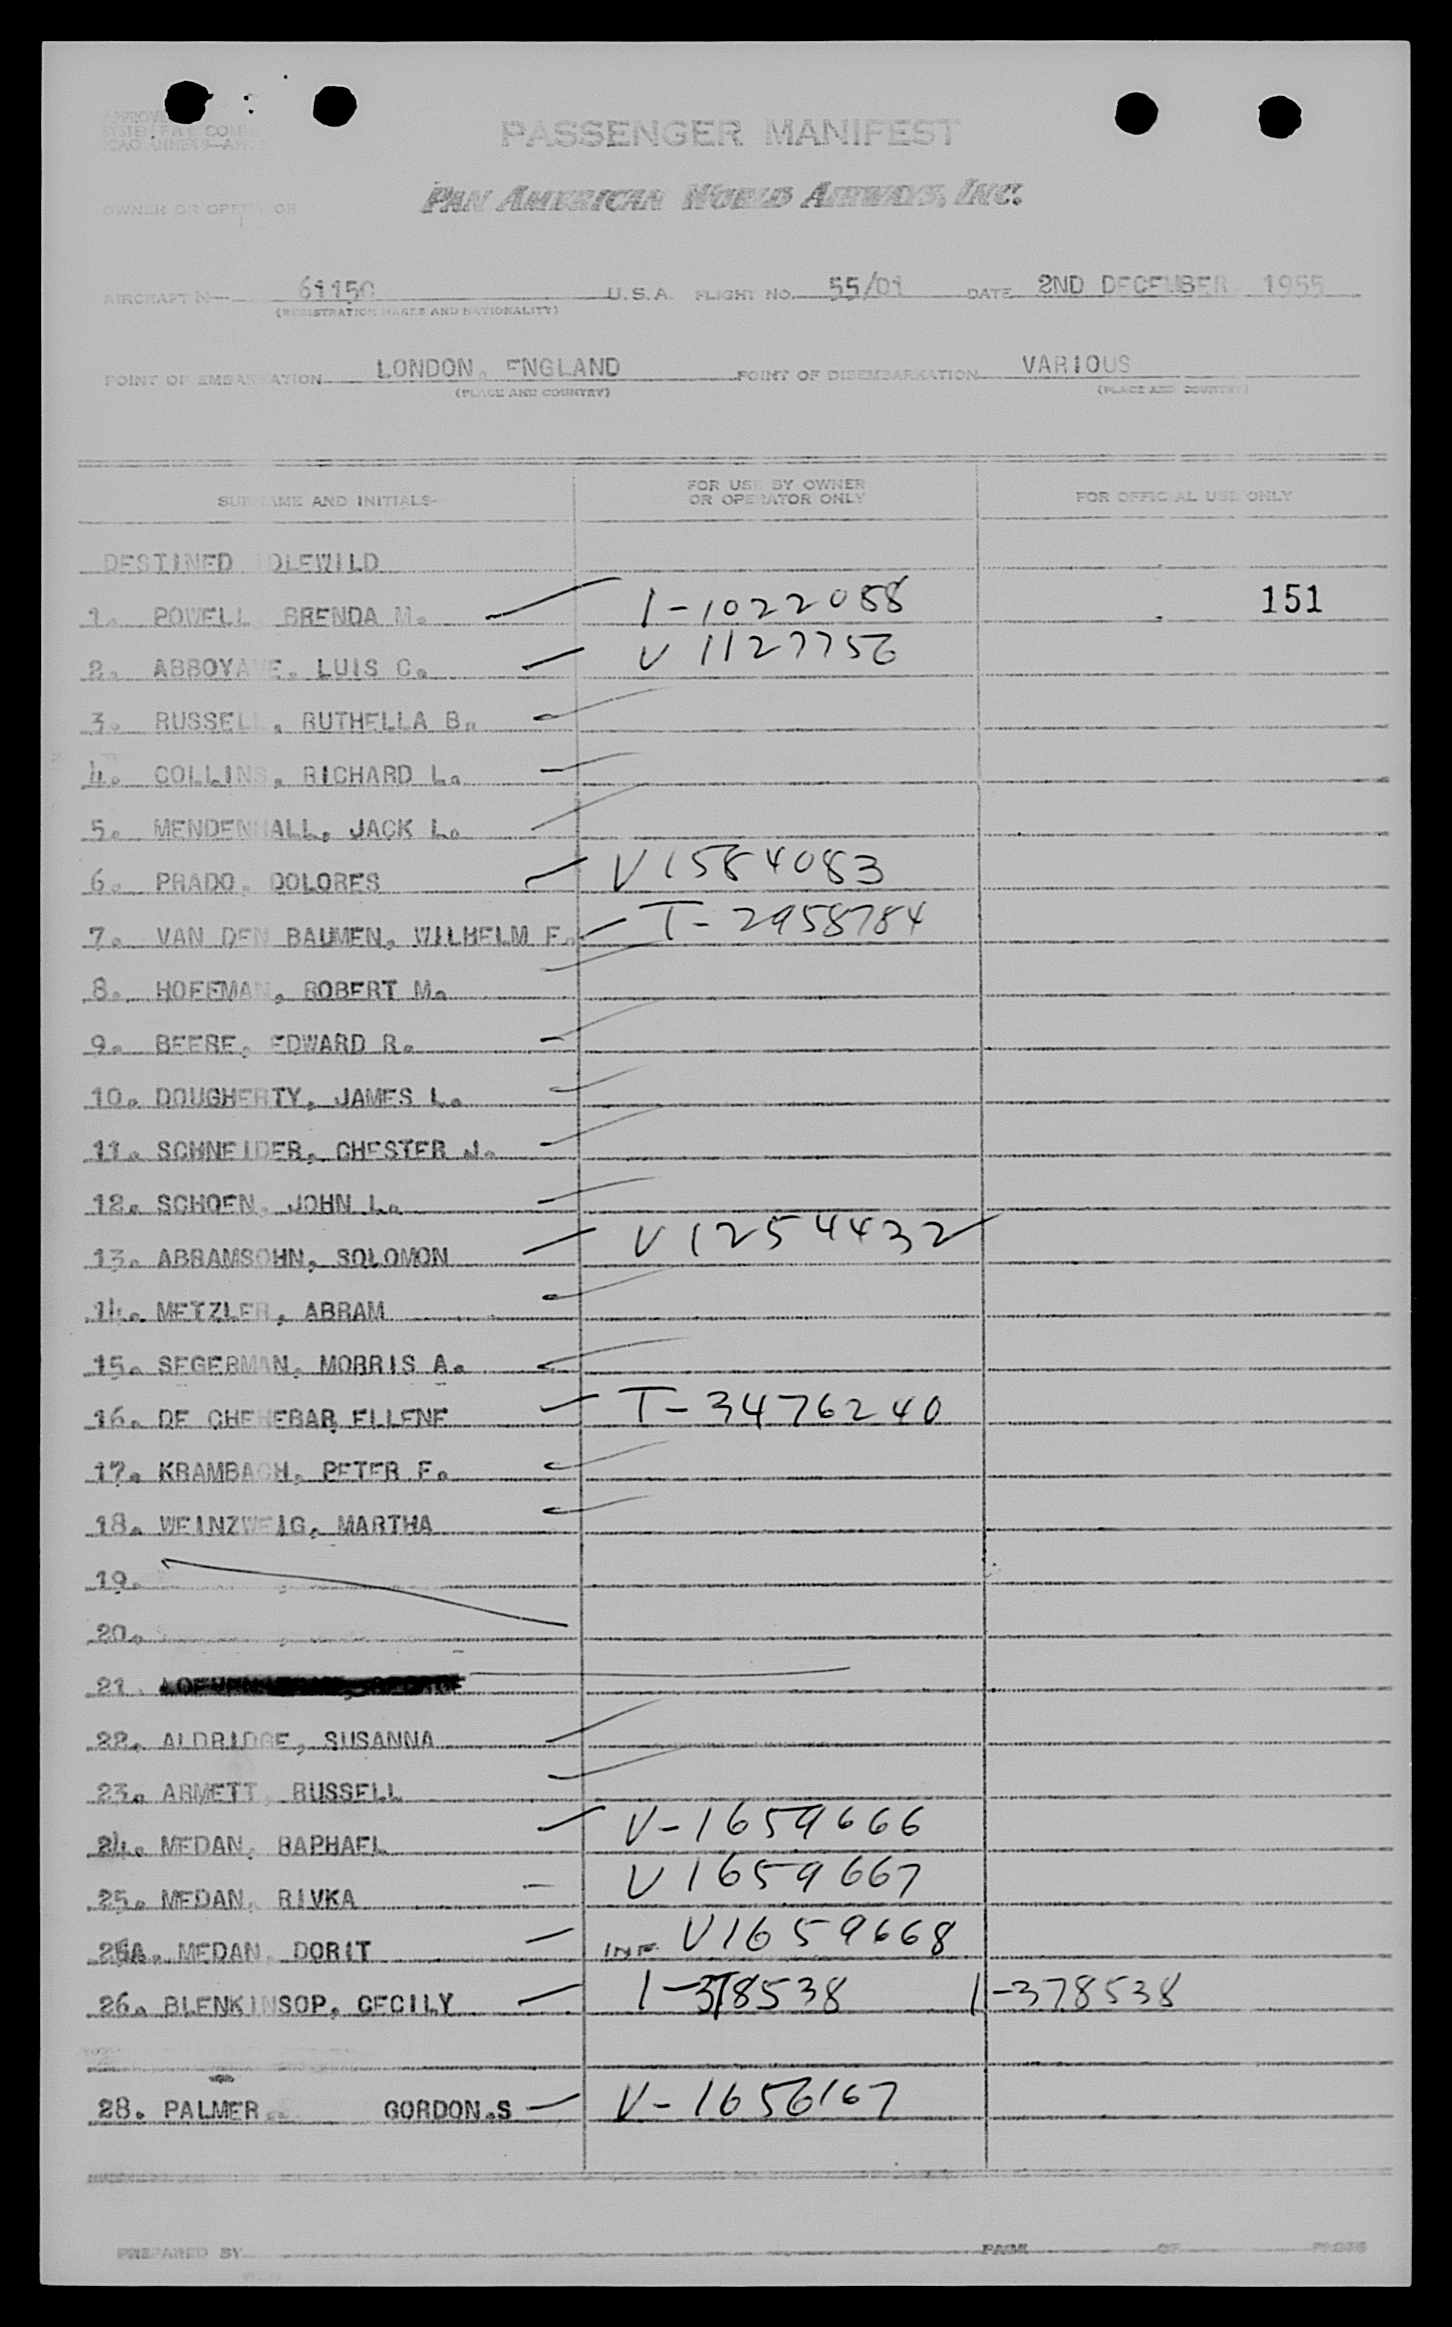 PASSENGER MANIFEST
PAN AMERICAN WORLD AIRWAYS, INC.
OWNER OR OPERATOR
AIRCRAFT N 61150 U.S.A. FLIGHT NO. 55/01 DATE 2ND DECEMBER 1955
(REGISTRATION MARKS AND NATIONALITY)
POINT OF EMBARKATION LONDON, ENGLAND POINT OF DISEMBARKATION VARIOUS
(PLACE AND COUNTRY) (PLACE AND COUNTRY)
SURNAME AND INITIALS FOR USE BY OWNER OR OPERATOR ONLY FOR OFFICIAL USE ONLY
DESTINED IDLEWILD
1. POWELL BRENDA M. 1-1022088 151
2. ABBOYAVE, LUIS C. V 1127756
3. RUSSELL, RUTHELLA B.
4. COLLINS, RICHARD L.
5. MENDENHALL, JACK L.
6. PRADO, DOLORES V 1584083
7. VAN DEN BAUMEN, WILHELM F. T-2958784
8. HOFFMAN, ROBERT M.
9. BEEBE, EDWARD R.
10. DOUGHERTY, JAMES L.
11. SCHNEIDER, CHESTER J.
12. SCHOEN, JOHN L.
13. ABRAMSOHN, SOLOMON V 1254432
14. METZLER, ABRAM
15. SEGERMAN, MORRIS A.
16. DE CHEHEBAR, ELLENE T-3476240
17. KRAMBACH, PETER F.
18. WEINZWEIG, MARTHA
19.
20.
21.
22. ALDRIDGE, SUSANNA
23. ARMETT, RUSSELL
24. MEDAN, RAPHAEL V-1659666
25. MEDAN, RIVKA V1659667
25A. MEDAN, DORIT INF. V1659668
26. BLENKINSOP, CECILY 1-378538 1-378538
28. PALMER GORDON.S V-1656167
PREPARED BY PAGE OF PAGES